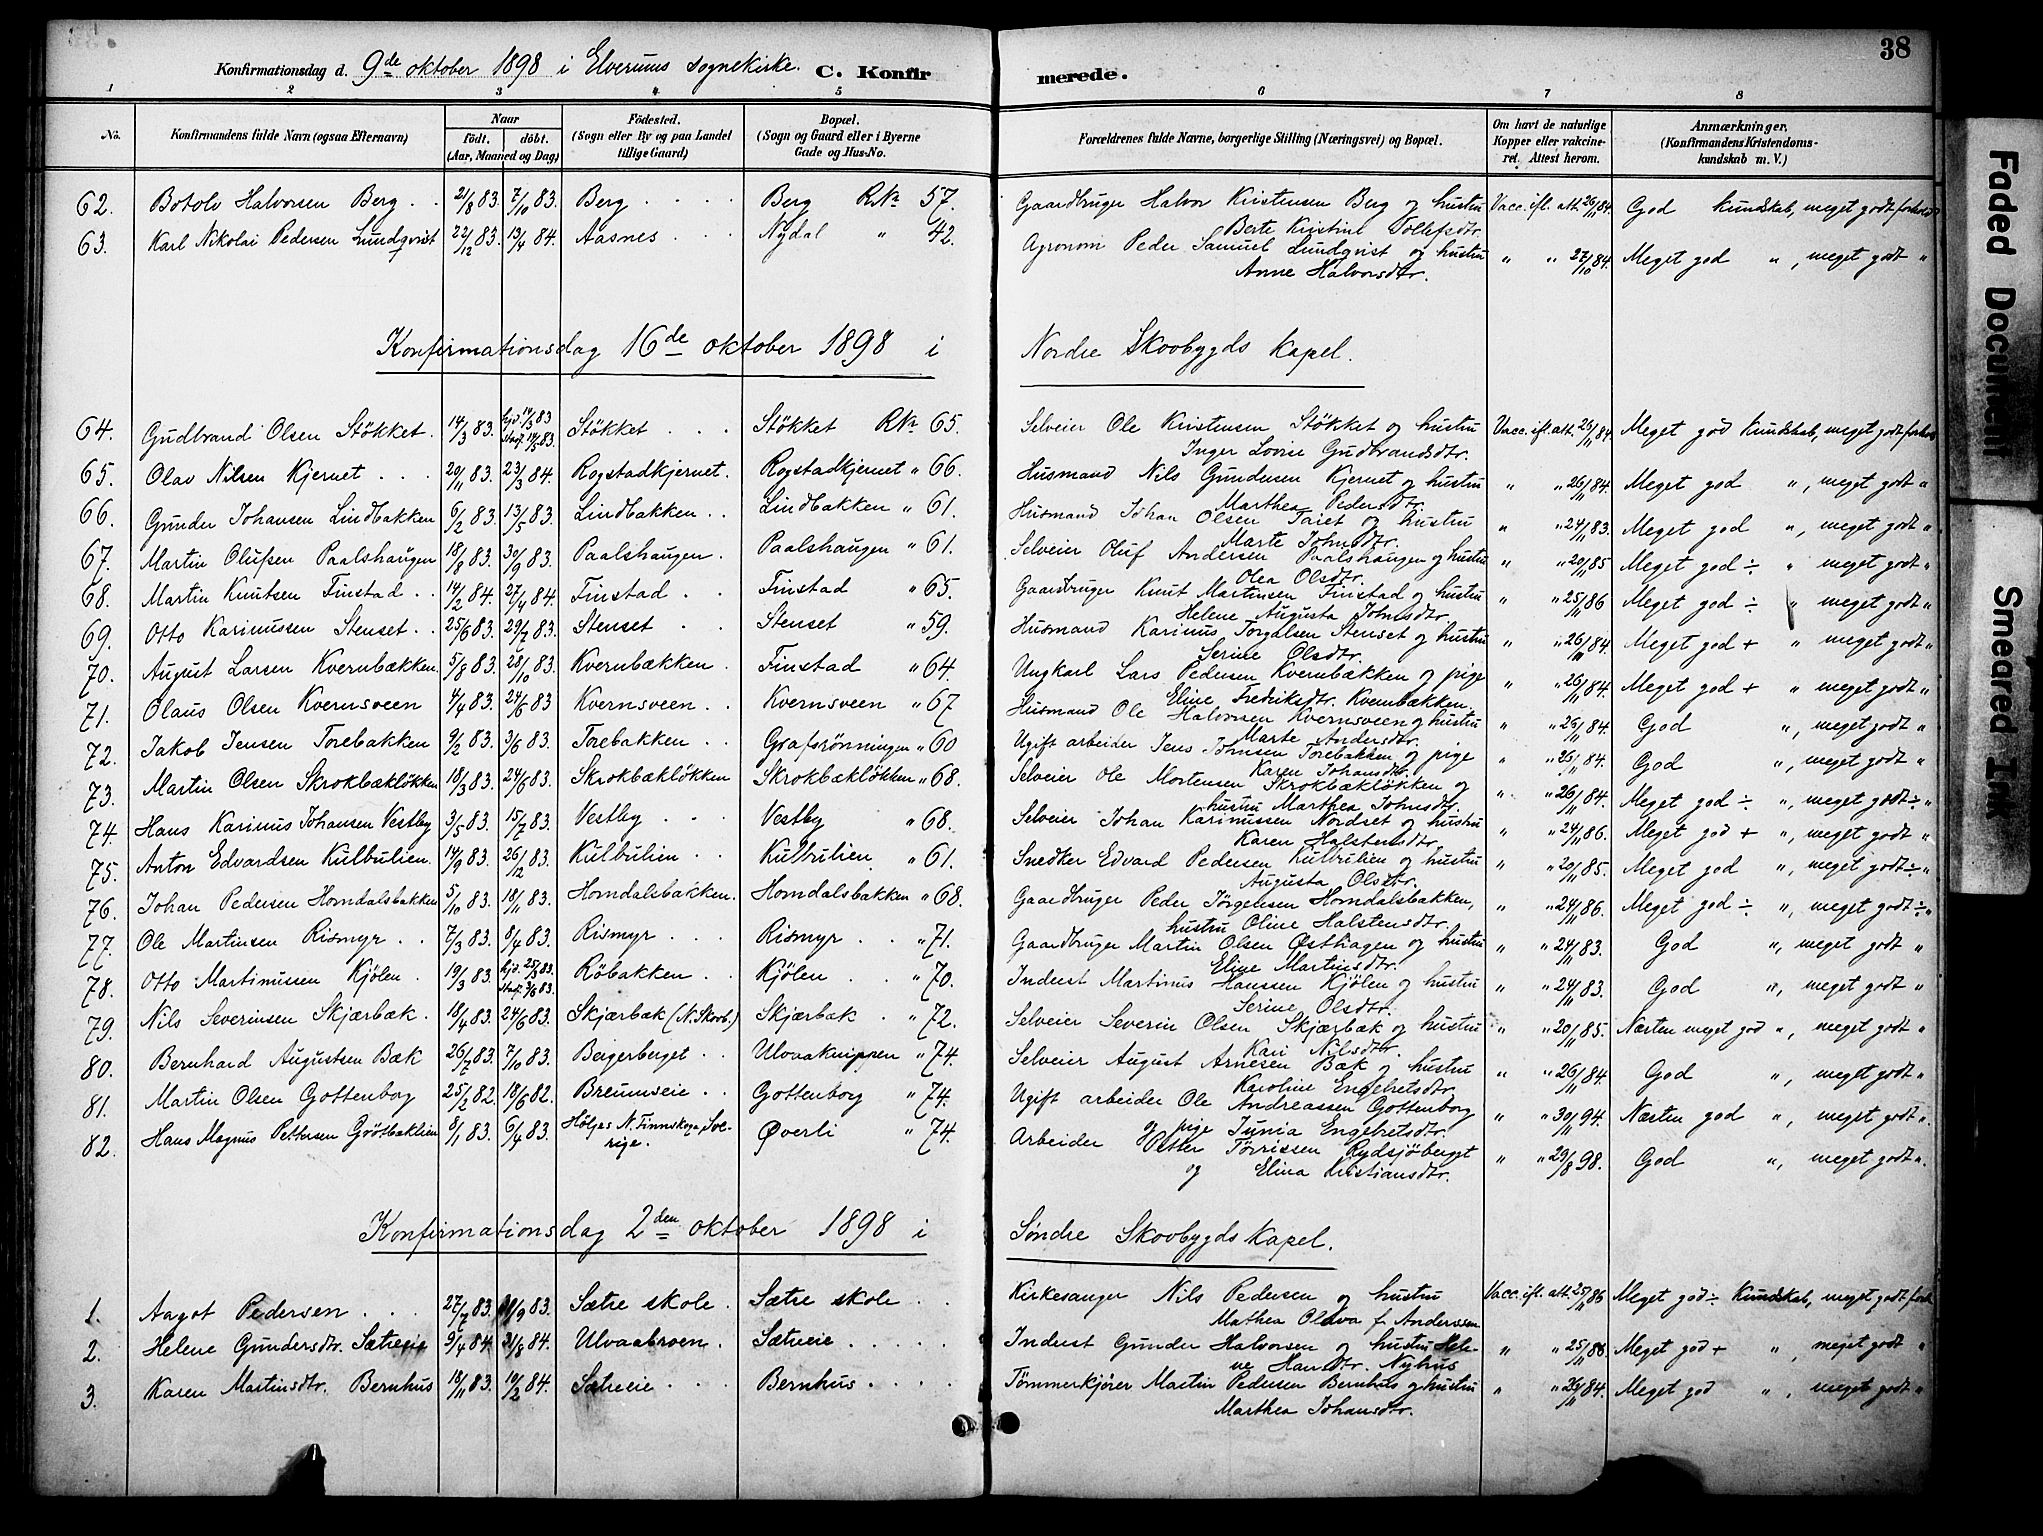 38
Konfirmationsdag d. 9de oktober 1898 i Elverums sognekirke. C. Konfirmerede.
1 2 3 4 5 6 7 8
No. Konfirmandens fulde Navn (ogsaa Efternavn) Naar födt. döbt. (Aar, Maaned og Dag) Födested. (Sogn eller By og paa Landet tillige Gaard) Bopæl. (Sogn og Gaard eller i Byerne Gade og Hus-No. Forældrenes fulde Navne, borgerlige Stilling (Næringsvei) og Bopæl. Om havt de naturlige Kopper eller vakcineret. Attest herom. Anmærkninger. (Konfirmandens Kristendomskundskab m. V.)
62. Botolv Halvorsen Berg . . 21/8 83. 7/10 83. Berg . . . . Berg RNr 57. Gaardbruger Halvor Kristensen Berg og hustru Berte Kristine Tollefsdtr. Vacc. ifl. att. 26/11 84. God kundskab, meget godt forhold
63. Karl Nikolai Pedersen Lundqvist 22/12 83. 13/4 84. Aasnes . . . Nydal " 42. Agronom Peder Samuel Lundqvist og hustru Anne Halvorsdtr. " " 27/10 84. Meget god ", meget godt "
Konfirmationsdag 16de oktober 1898 i Nordre Skovbygds kapel.
64. Gudbrand Olsen Stökket. 14/3 83. hjd. 14/3 83 14/5 83. Stökket . . . Stökket RNr 65. Selveier Ole Kristensen Stökket og hustru Inger Lovise Gudbrandsdtr. Vacc. ifl. att. 26/11 84. Meget god kundskab, meget godt forhold
65. Olav Nilsen Kjernet . . . 20/11 83. 23/3 84. Rogstadkjernet. Rogstadkjernet " 66. Husmand Nils Gundersen Kjernet og hustru Marthea Pedersdtr. " " 26/11 84. Meget god ", meget godt "
66. Gunder Johansen Lindbakken 6/2 83. 13/5 83. Lindbakken . . Lindbakken " 61. Husmand Johan Olsen Taiet og hustru Marte Johnsdtr. " " 24/11 83. Meget god ", meget godt "
67. Martin Olufsen Paalshaugen 18/8 83. 30/9 83. Paalshaugen . Paalshaugen " 61. Selveier Oluf Andersen Paalshaugen og hustru Olea Olsdtr. " " 20/11 85 Meget god ÷ " meget godt "
68. Martin Knutsen Finstad . . 14/2 84. 27/4 84. Finstad . . Finstad " 65. Gaardbruger Knut Martinsen Finstad og hustru Helene Augusta Johnsdtr. " " 25/11 86 Meget god ÷ " meget godt "
69. Otto Karinussen Stenset . . 25/6 83. 29/7 83. Stenset . . Stenset " 59. Husmand Karinus Torgalsen Stenset og hustru Serine Olsdtr. " " 26/11 84. Meget god + " meget godt "
70. August Larsen Kvernbækken. 5/8 83. 28/10 83. Kvernbækken. Finstad " 64. Ungkarl Lars Pedersen Kvernbækken og pige Eline Fredriksdtr. Kvernbækken. " " 26/11 84. Meget god + " meget godt "
71. Olaus Olsen Kvernsveen 4/4 83. 24/6 83 Kvernsveen . . Kvernsveen " 67 Husmand Ole Halvorsen Kvernsveen og hustru Marte Andersdtr. " " 26/11 84. God ", meget godt "
72. Jakob Jensen Torebakken 9/2 83. 3/6 83. Torebakken . . Grafsrönningen " 60 Ugift arbeider Jens Jönnsen Torebakken og pige Karen Johansdtr. " " 26/11 84. God ", meget godt "
73. Martin Olsen Skrokbæklökken 18/3 83. 24/6 83. Skrokbæklökken Skrokbæklökken " 68. Selveier Ole Mortensen Skrokbæklökken og hustru Marthea Johnsdtr. " " 26/11 84. Meget god ÷ ", meget godt ÷ "
74. Hans Karinus Johansen Vestby 3/5 83. 15/7 83. Vestby . . . Vestby " 68. Selveier Johan Karinussen Nordset og hustru Karen Halstensdtr. " " 24/11 86. Meget god + ", meget godt "
75. Anton Edvardsen Kulbulien. 14/9 83. 26/12 83. Kulbulien . . Kulbulien " 61. Snedker Edvard Pedersen Kulbulien og hustru Augusta Olsdtr. " " 20/11 85. Meget god ", meget godt ÷ "
76. Johan Pedersen Horndalsbakken 5/10 83. 18/11 83. Horndalsbakken. Horndalsbakken " 68. Gaardbruger Peder Jörgensen Horndalsbakken, hustru Oline Halstensdtr. " " 24/11 86. Meget god ÷ ", meget godt ÷ "
77. Ole Martinsen Rismyr . . 7/3 83. 8/4 83. Rismyr . . . Rismyr . . " 71. Gaardbruger Martin Olsen Østhagen og hustru Eline Martinsdtr. " " 24/11 83. God ", meget godt "
78. Otto Martinussen Kjölen . 19/3 83. hjd. 25/3 83. 3/6 83. Röbakken . . Kjölen . . " 70. Inderst Martinus Hanssen Kjölen og hustru Serine Olsdtr. " " 24/11 83. God ", meget godt "
79. Nils Severinsen Skjærbæk . 18/4 83. 24/6 83. Skjærbæk (N. Skovb.) Skjærbæk . " 72. Selveier Severin Olsen Skjærbæk og hustru Kari Nilsdtr. " " 20/11 85. Næsten meget god ", meget godt "
80. Bernhard Augustsen Bæk 26/7 83. 7/10 83. Beigerberget . . Ulvaaknippen " 74. Selveier August Arnesen Bæk og hustru Karoline Engebretsdtr. " " 26/11 84. God ", meget godt "
81. Martin Olsen Gottenborg 25/2 82. 18/6 82. Breumseie . . Gottenborg " 74. Ugift arbeider Ole Andreassen Gottenborg og pige Junia Engebretsdtr. " " 30/11 94. Næsten god ", meget godt ".
82. Hans Magnus Pettersen Grötbæklien 8/1 83. 6/4 83. N. Finnskoga, Sverige. Øverli " 74. Arbeider Petter Törrissen Rydsjöberget og Elina Kristiansdtr. " " 29/8 98. God ", meget godt ".
Konfirmationsdag 2den oktober 1898 i Søndre Skovbygds kapel.
1. Aagot Pedersen . . . 27/7 83. /9 83. Sætre skole . Sætre skole . . Kirkesanger Nils Pedersen og hustru Mathea Olava f. Anderssen Vacc. ifl. att. 25/11 86 Meget god ÷ kundskab, meget godt forh
2. Helene Gundersdtr. Sætreeie 9/4 84. 31/8 84. Ulvaabroen . . Sætreeie . . . . . Inderst Gunder Halvorsen og hustru Helene Hansdtr. Nyhus " " 25/11 86. Meget god + ", meget godt "
3. Karen Martinsdtr. Bernhus 18/11 83. 10/2 84. Sætreeie . . . Bernhus . . . . Tömmerkjörer Martin Pedersen Bernhus og hustru Marthea Johansdtr. " " 26/11 84. Meget god ", meget godt "
Faded Document
Smeared Ink